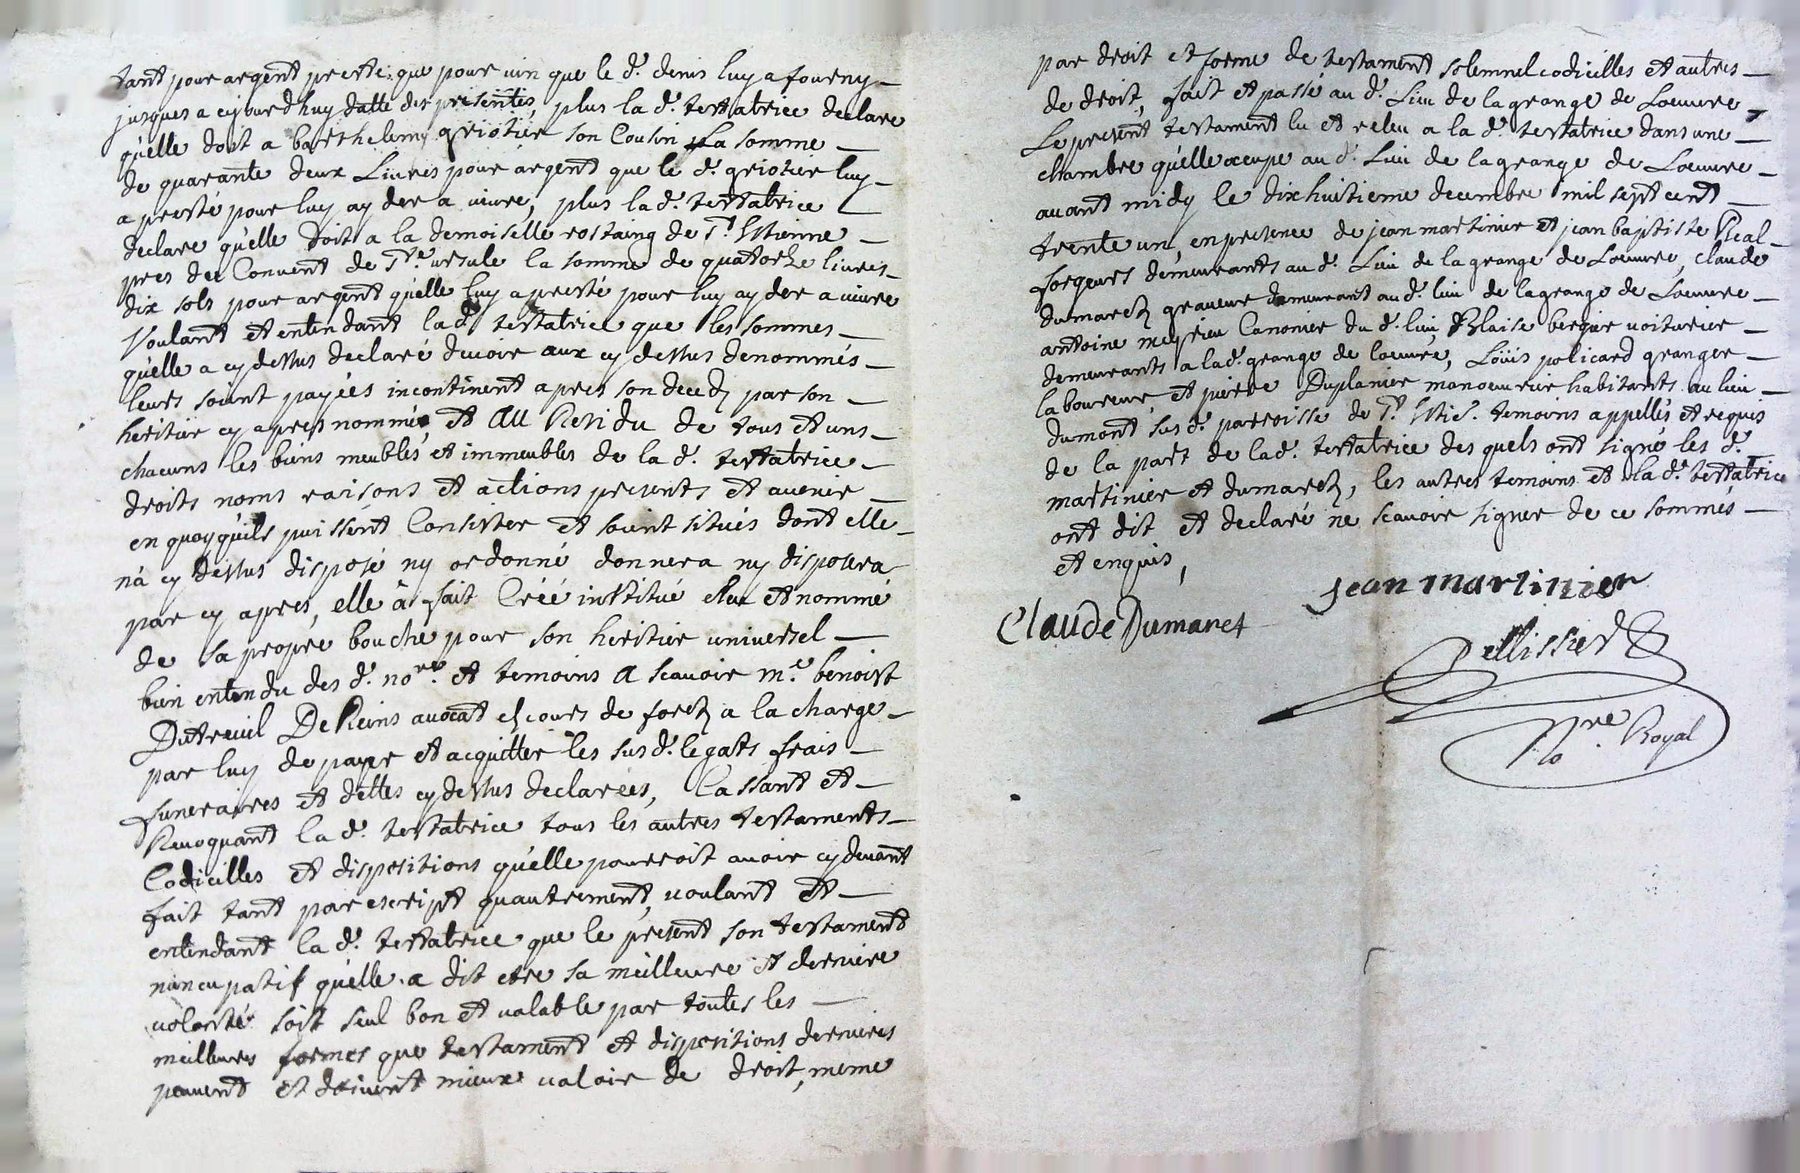 tant pour argent presté que pour vin que le d.t denis luy a fourny
jusques a ejourdhuy datte des presentes, plus la d.e testatrice declare
qu'elle doit a barthelemy griotier son Cousin La somme
de quarante deux Livres pour argent que le d.t griotier luy
a presté pour luy ayder a vivre, plus la d.e testatrice
declare qu'elle doit a la demoiselle rostaing de S.t Estienne
pres du Convent de S.te ursule la somme de quatorze livres
dix sols pour argent qu'elle luy a presté pour luy ayder a vivre
Voulant et entendant la d.e testatrice que les sommes
qu'elle a cy dessus declaré devoir aux cy dessus denommés
leurs soient payées incontinent apres son decedz par son
heritier cy apres nommé, et au Residu de tous et uns
chacuns les biens meubles et immeubles de la d.e testatrice
droits noms raisons et actions presents et avenir
en quoy qu'ils puissent Consister et soient situés dont elle
n'a cy dessus disposé ny ordonné donnera ny disposera
par cy apres, elle à fait Créé institué elue et nommé
de sa propre bouche pour son heritier universel
bien entendu des d.ts no.re et temoins a scavoir m.e benoist
Dutreuil De Reins avocat es cours de forez a la charge
par luy de payer et acquitter les sus d.ts legats frais
funeraires et dettes cy dessus declarées, Cassant et
Revoquant la d.e testatrice tous les autres testaments
Codicilles et dispositions qu'elle pourroit avoir cy devant
fait tant par escript quautrement, voulant et
entendant la d.e testatrice que le present son testament
nuncupatif qu'elle a dit etre sa meilleure et derniere
volonté soit seul bon et valable par toutes les
meilleures formes que testament et dispositions dernieres
peuvent et doivent mieux valoir de droit, meme
par droit et forme de testament solemnel codicilles et autres
de droit, fait et passé au d.t Lieu de lagrange de Loeuvre,
Le present testament lu et releu a la d.e testatrice dans une
chambre qu'elle occupe au d.t Lieu de lagrange de Loeuvre
avant midy le dixhuitieme decembre mil sept cent
trente un, en presence de jean martinier et jean baptiste Real
forgeurs demeurants au d.t Lieu de lagrange de Loeuvre, claude
dumarest graveur demeurant au d.t lieu de lagrange de Loeuvre
antoine meysrieu Canonier du d.t lieu, Blaise bergier voiturier
demeurants a la d.e grange de loeuvre, Loüis policard granger
laboureur, et pierre Duplanier manoeuvrier habitants au lieu
dumont sus d.e parroisse de S.t Esti.e temoins appellés et requis
de la part de la d.e testatrice des quels ont signé les d.ts
martinier et dumarest, les autres temoins et la d.e testatrice
ont dit et declaré ne scavoir signer de ce sommés
et enquis,
jean martinier
Claude Dumaret
Pellissier
No.re Royal